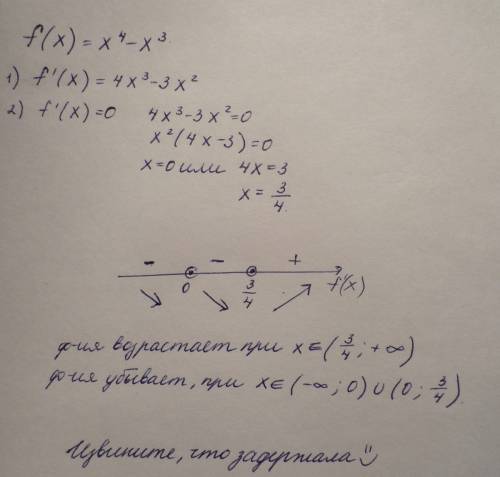 f(x) = x⁴ - x³.
1) f'(x) = 4x³ - 3x²
2) f'(x) = 0 4x³ - 3x² = 0
x²(4x - 3) = 0
x = 0 или 4x = 3
x = 3/4.
- - +
0 3/4 f'(x)
ф-ия возрастает при x ∈ (3/4; +∞)
ф-ия убывает, при x ∈ (-∞; 0) ∪ (0; 3/4).
Извините, что задержала